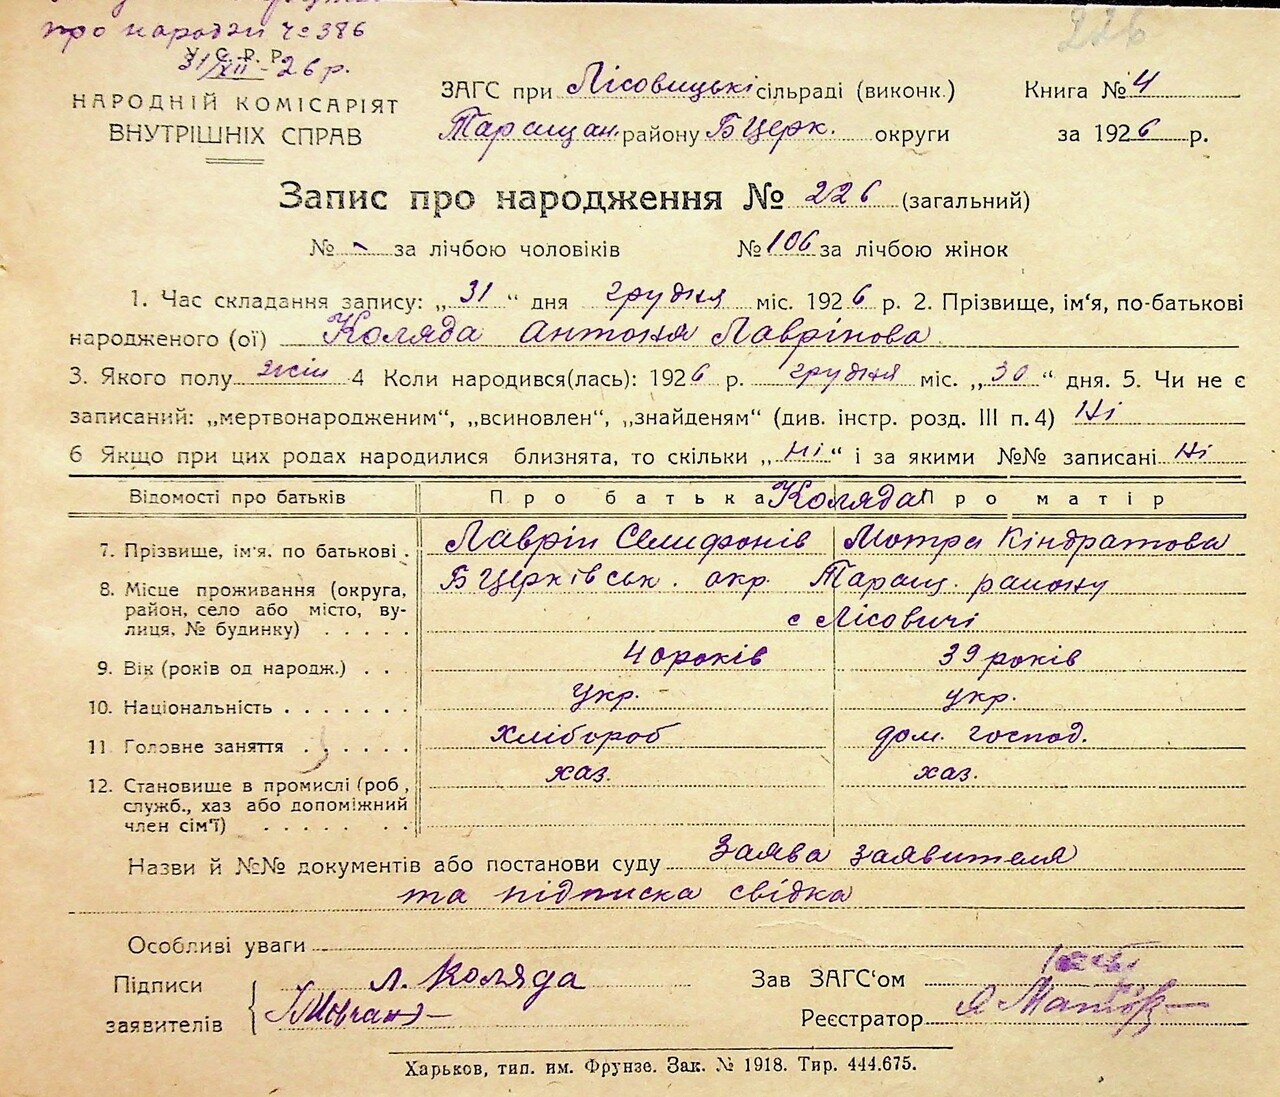 про народж ч. 386
У. С. Р. Р.
31/XII - 26 р.
226
НАРОДНІЙ КОМІСАРІЯТ
ВНУТРІШНІХ СПРАВ
ЗАГС при Лісовицькі сільраді (виконк.)
Таращан. району БЦерк. округи
Книга № 4
за 1926 р.
Запис про народження № 226 (загальний)
№ - за лічбою чоловіків № 106 за лічбою жінок
1. Час складання запису: „31“ дня грудня міс. 1926 р. 2. Прізвище, ім‘я, по-батькові
народженого (ої) Коляда Антоня Лаврінова
3. Якого полу жін 4 Коли народився(лась): 1926 р. грудня міс. „30“ дня. 5. Чи не є
записаний: „мертвонародженим“, „всиновлен“, „знайденям“ (див. інстр. розд. III п. 4) Ні
6 Якщо при цих родах народилися близнята, то скільки „ні“ і за якими №№ записані Ні
Відомості про батьків Про батька Коляда Про матір
7. Прізвище, ім‘я. по батькові . Лаврін Семифонів Мотря Кіндратова
8. Місце проживання (округа, БЦерківськ. окр. Таращ. району
район, село або місто, ву-
лиця, № будинку) . . . . . с Лісовичі
9. Вік (років од народж.) . . 40 років 39 років
10. Національність . . . . . . . укр. укр.
11 Головне заняття . . . . . . хлібороб дом. господ.
12. Становище в промислі (роб., хаз. хаз.
служб., хаз або допоміжний
член сім‘ї) . . . . . . .
Назви й №№ документів або постанови суду Заява заявителя
та підписка свідка
Особливі уваги
Підписи
заявителів
Л. Коляда
Мовчан
Зав ЗАГС‘ом
Реєстратор
Харьков, тип. им. Фрунзе. Зак. № 1918. Тир. 444.675.